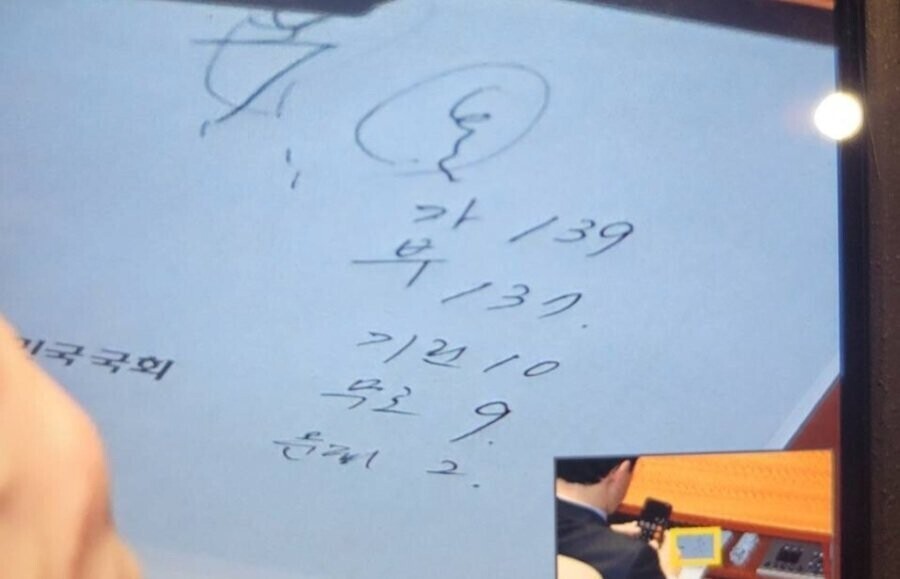 가 139
부 137.
기권 10
민국국회
무효 9.
문제 2.